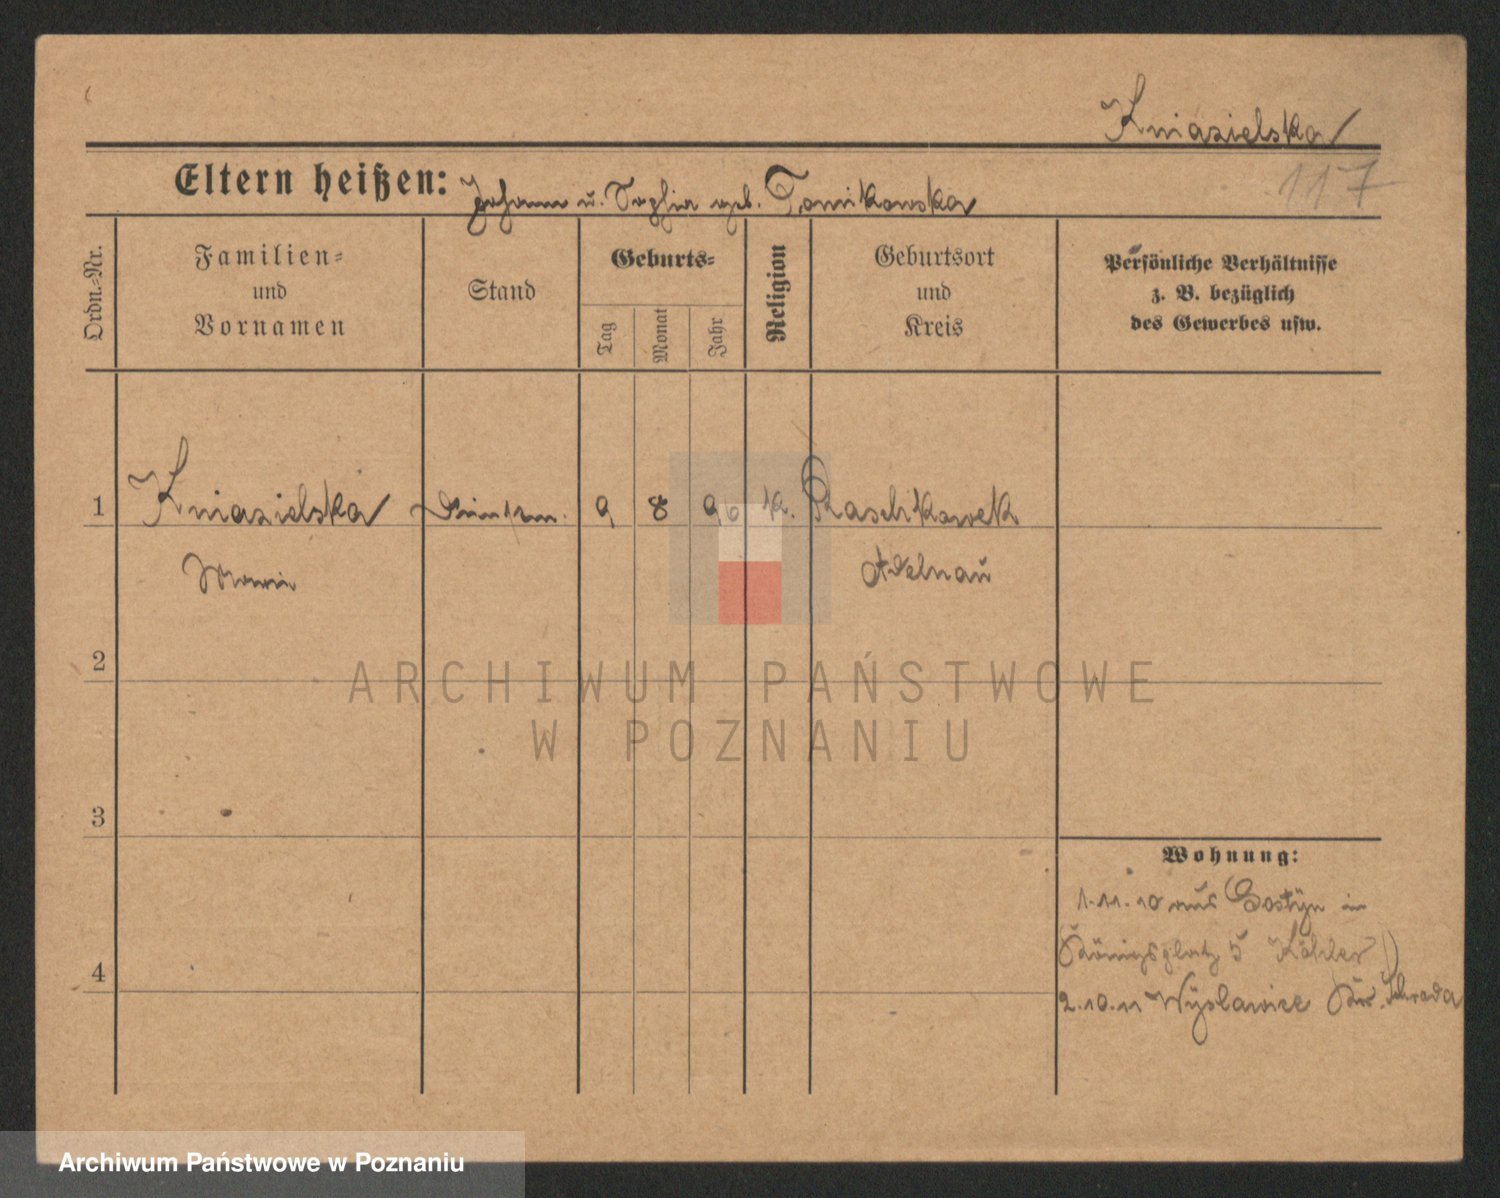 Kniazielska
117
Eltern heißen: Johann u. Sophia geb. Tomikowska
Ordn.-Nr.
Familien-
und
Vornamen
Stand
Geburts-
Tag
Monat
Jahr
Religion
Geburtsort
und
Kreis
Persönliche Verhältnisse
z. B. bezüglich
des Gewerbes usw.
1 Kniazielska 9 8 96 k. Raschkowek
Maria Adelnau
2
3
4
Wohnung:
1.11.10 aus Gostyn in
Königsplatz 5 Köhler
2.10.11 Wyslawice Kr. Schroda
ARCHIWUM PAŃSTWOWE
W POZNANIU
Archiwum Państwowe w Poznaniu